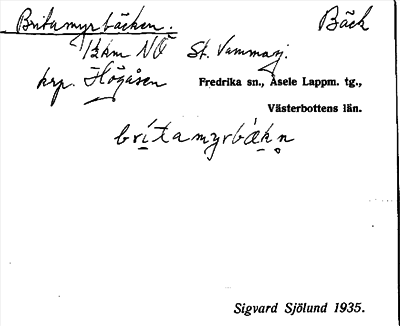 Britamyrbäcken. Bäck
1½ km NÖ St. Vammasj.
krp. Högåsen Fredrika sn., Åsele Lappm. tg.,
Västerbottens län.
britamyrbäkn
Sigvard Sjölund 1935.